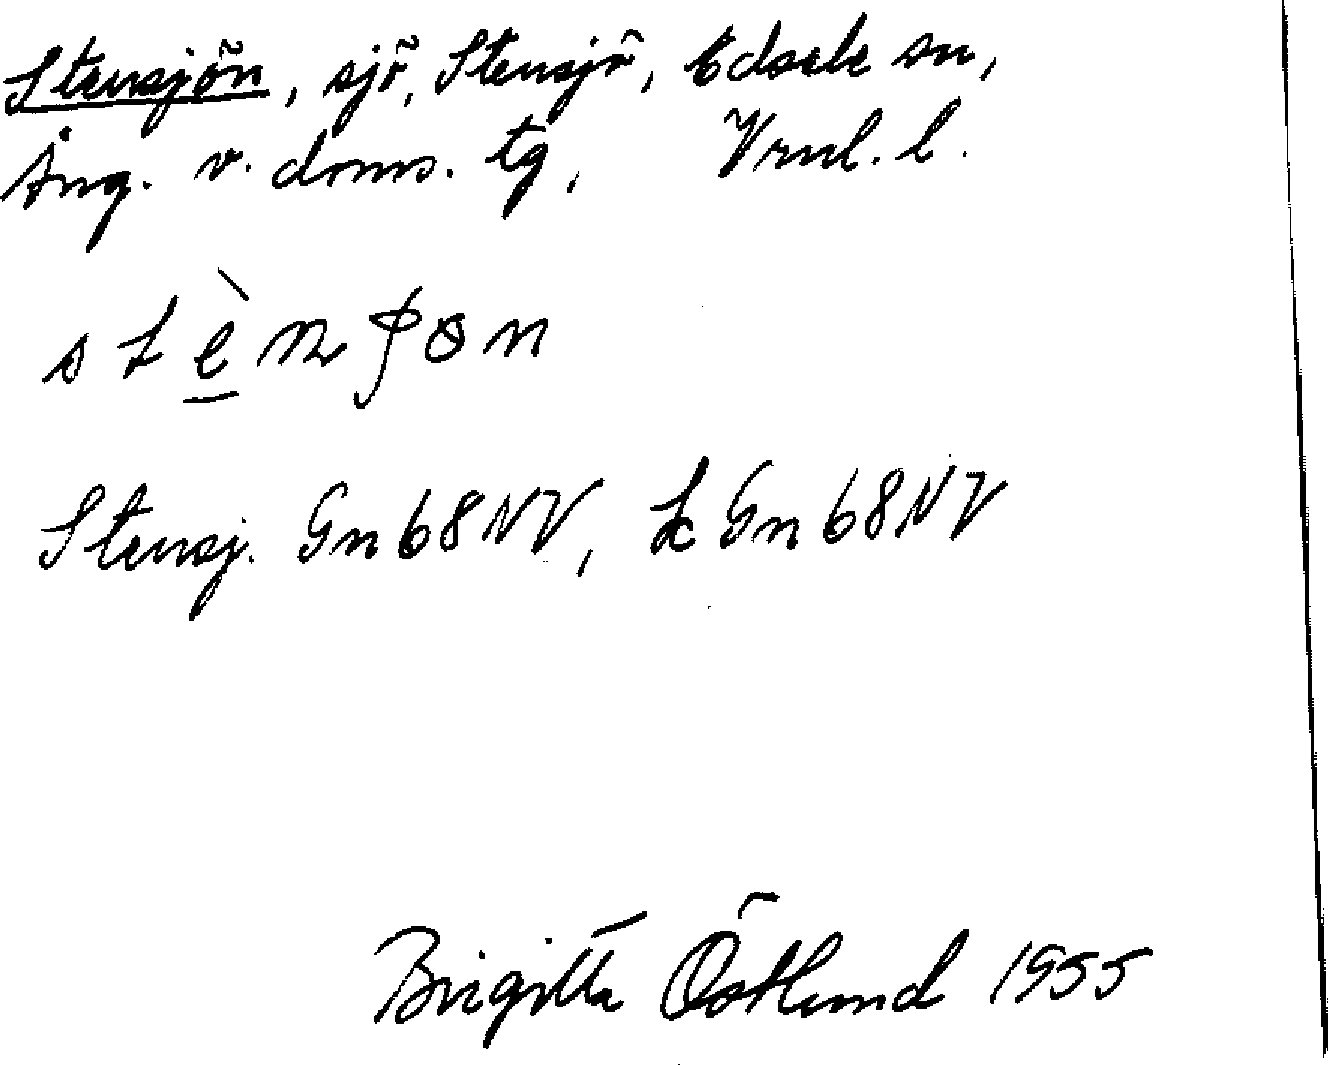 Stensjön, sjö, Stensjö, Edsele sn,
Ång. v. doms. tg, Vrnl. l.
stè̲nʃɵn
Stensj. Gn68NV, k Gn68NV
Birgitta Östlund 1955